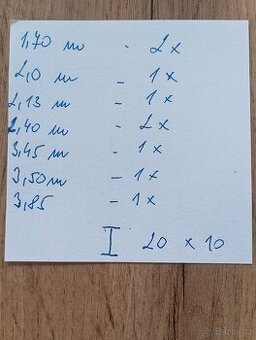 1,70 m - 2x
2,0 m - 1x
2,13 m - 1x
2,40 m - 2x
3,45 m - 1x
3,50 m - 1x
3,85 - 1x
I 20 x 10